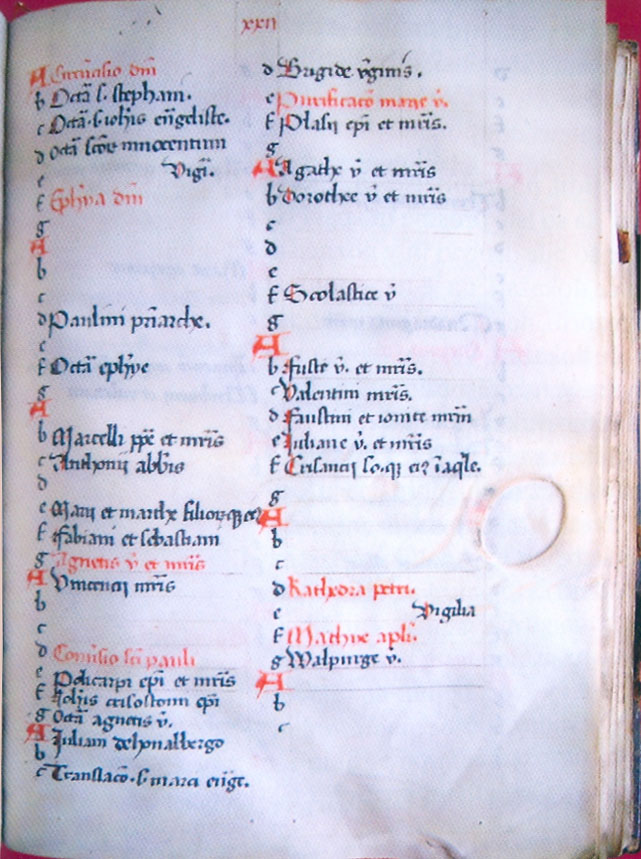 xxii
A Circūcisio dñi
b Octā s. stephani.
c Octā. s. iohis eūgeliste.
d Octā scōr innocentum
e Vigi.
f Epyhīa dñi
g
A
b
c
d Paulini priarche.
e
f Octā ephye
g
A
b Marcelli ppe et mris
c Anthonii abbis
d
e Marii et marthe filior
f Fabiani et sebastiani
g Agnetis v̄ et mris
A Vincencij mris
b
c
d Conūsio sci pauli
e Policarpi epi et mris
f Iohis crisostomi epi
g Octā agnetis v.
A Iuliani
b
c Translacō. s. marci eūge.
d Brigide v̄ginis.
e Purificacō marie v.
f Plasii epi et mris.
g
A Agathe v̄ et mris
b Dorothee v̄ et mris
c
d
e
f Scolastice v̄
g
A
b Fuste v̄. et mris.
c Valentini mris.
d Faustini et iouite mrm
e Iuliane v̄. et mris
f
g
A
b
c
d Kathedra petri.
e Vigilia
f Mathie apli.
g Walpurge v̄.
A
b
c